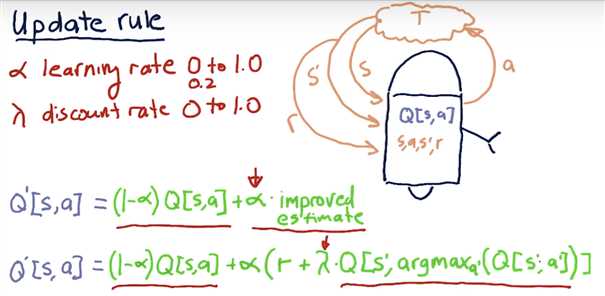 Update rule
α learning rate 0 to 1.0
0.2
λ discount rate 0 to 1.0
T
s'
s
a
r
Q[s,a]
s,a,s',r
Q'[s,a] = (1-α) Q[s,a] + α · improved
estimate
Q'[s,a] = (1-α) Q[s,a] + α (r + λ · Q[s', argmaxₐ'(Q[s',a'])]